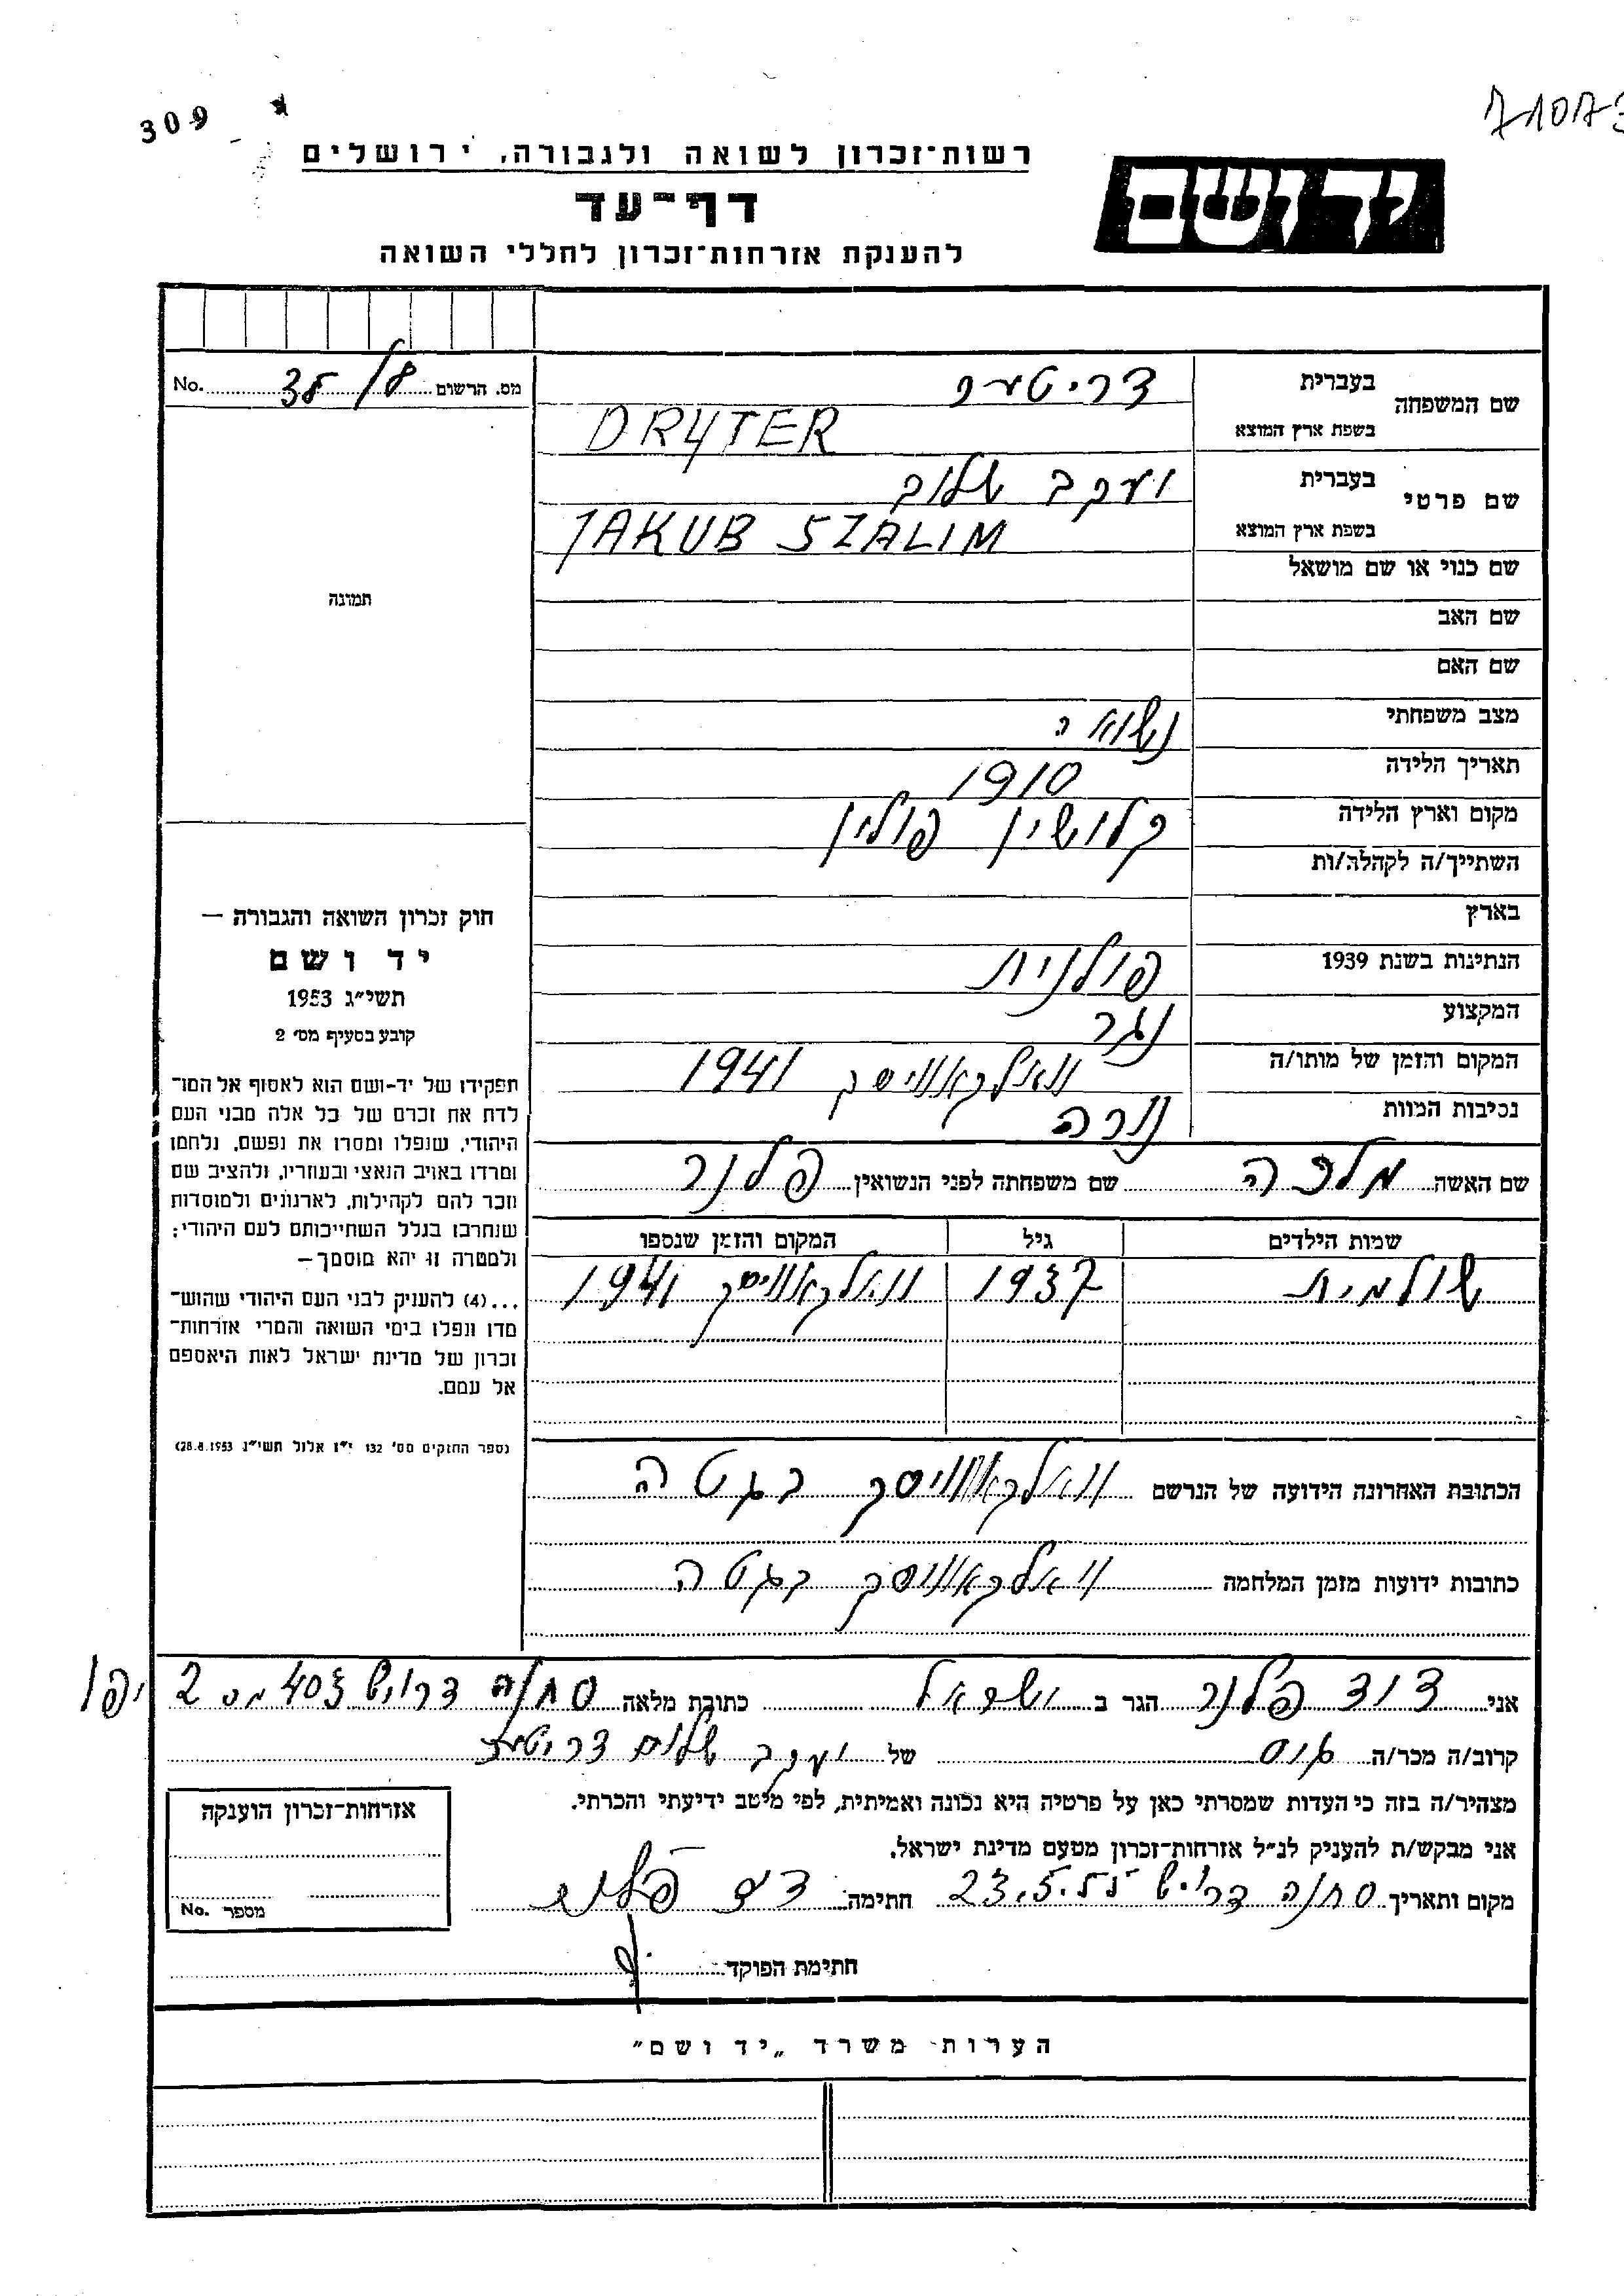 309
71073
רשות־זכרון לשואה ולגבורה, ירושלים
יד ושם
דף־עד
להענקת אזרחות־זכרון לחללי השואה
מס. הרשום 38/ No.
שם המשפחה בעברית דריטער
בשפת ארץ המוצא DRYTER
שם פרטי בעברית יעקב שלום
בשפת ארץ המוצא JAKUB SZALIM
שם כנוי או שם מושאל
שם האב
שם האם
מצב משפחתי נשוי
תאריך הלידה 1910
מקום וארץ הלידה קלושין פולין
השתייך/ה לקהלה/ות
בארץ
הנתינות בשנת 1939 פולנית
המקצוע נגר
המקום והזמן של מותו/ה וואלקאוויסק 1941
נסיבות המוות נורה
שם האשה מלכה שם משפחתה לפני הנשואין פלנר
שמות הילדים גיל המקום והזמן שנספו
שולמית 1937 וואלקאוויסק 1941
הכתובת האחרונה הידועה של הנרשם וואלקאוויסק בגטה
כתובות ידועות מזמן המלחמה וואלקאוויסק בגטה
תמונה
חוק זכרון השואה והגבורה —
יד ושם
תשי״ג 1953
קובע בסעיף מס׳ 2
תפקידו של יד-ושם הוא לאסוף אל המו־
לדת את זכרם של כל אלה מבני העם
היהודי, שנפלו ומסרו את נפשם, נלחמו
ומרדו באויב הנאצי ובעוזריו, ולהציב שם
וזכר להם לקהילות, לארגונים ולמוסדות
שנחרבו בגלל השתייכותם לעם היהודי;
ולמטרה זו יהא מוסמך—
...(4) להעניק לבני העם היהודי שהוש־
מדו ונפלו בימי השואה והמרי אזרחות־
זכרון של מדינת ישראל לאות היאספם
אל עמם.
(ספר החוקים מס׳ 132 י״ז אלול תשי״ג 28.8.1953)
אני דוד פלנר הגר ב ישראל כתובת מלאה סחנה דרויש 403 מס 2 יפו
קרוב/ה מכר/ה גיס של יעקב שלום דריטער
מצהיר/ה בזה כי העדות שמסרתי כאן על פרטיה היא נכונה ואמיתית, לפי מיטב ידיעתי והכרתי.
אני מבקש/ת להעניק לנ״ל אזרחות־זכרון מטעם מדינת ישראל.
מקום ותאריך סחנה דרויש 23.5. חתימה דוד פלנר
חתימת הפוקד
אזרחות־זכרון הוענקה
מספר No.
הערות משרד „יד ושם״